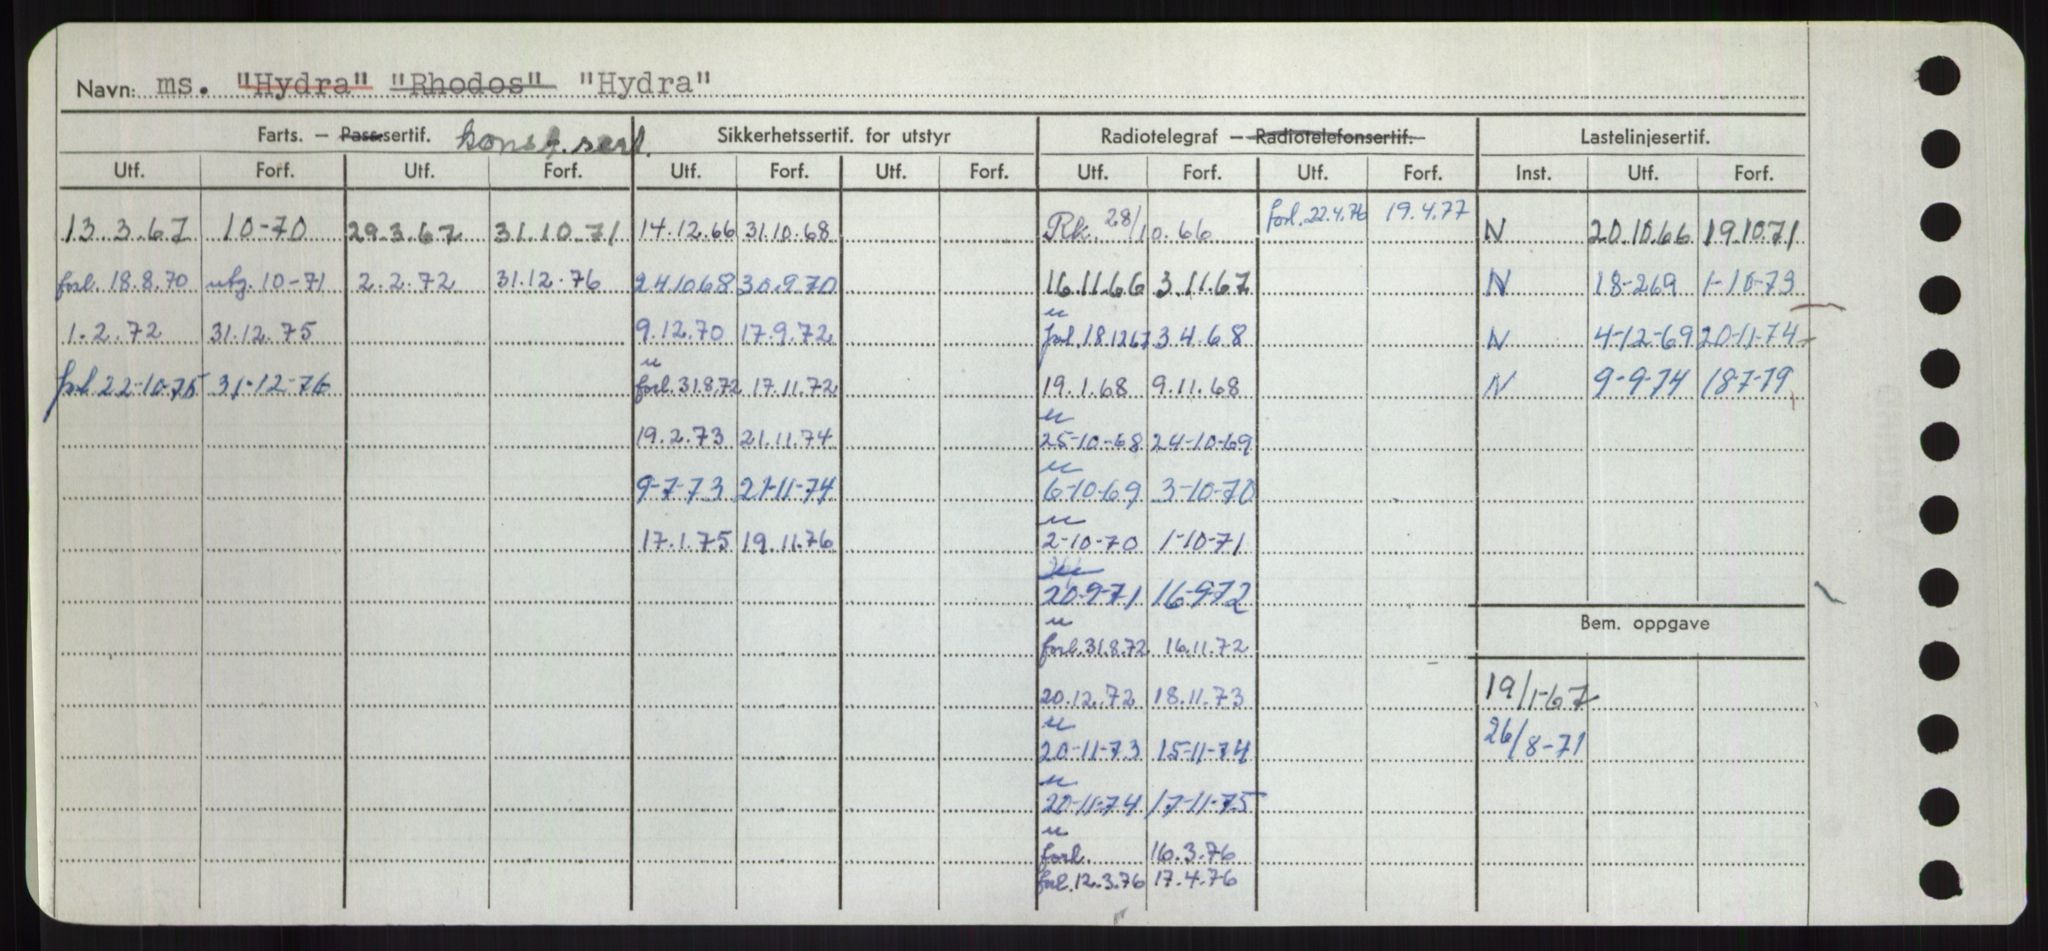 Navn: ms. "Hydra" "Rhodos" "Hydra"
Farts. – Pass.sertif. konst. sert. Sikkerhetssertif. for utstyr Radiotelegraf – Radiotelefonsertif. Lastelinjesertif.
Utf. Forf. Utf. Forf. Utf. Forf. Utf. Forf. Utf. Forf. Utf. Forf. Inst. Utf. Forf.
13.3.67 10-70 29.3.67 31.10.71 14.12.66 31.10.68 Rk. 28/10.66 forl. 22.4.76 19.4.77 N 20.10.66 19.10.71
forl. 18.8.70 utg. 10-71 2.2.72 31.12.76 24.10.68 30.9.70 16.11.66 3.11.67 N 18-2.69 1-10-73
1.2.72 31.12.75 9.12.70 17.9.72 forl. 18.12.67 3.4.68 N 4-12-69 20-11-74
forl. 22-10-75 31-12-76 forl. 31.8.72 17.11.72 19.1.68 9.11.68 N 9-9-74 18-7-79
19.2.73 21.11.74 25-10-68 24-10-69
9-7-73 21-11-74 6-10-69 3-10-70
17.1.75 19.11.76 2-10-70 1-10-71
20-9-71 16-9-72
Bem. oppgave
forl. 31.8.72 16.11.72
20.12.72 18.11.73 19/1-67
20-11-73 15-11-74 26/8-71
20-11-74 17-11-75
forl. 16.3.76
forl. 12.3.76 17.4.76